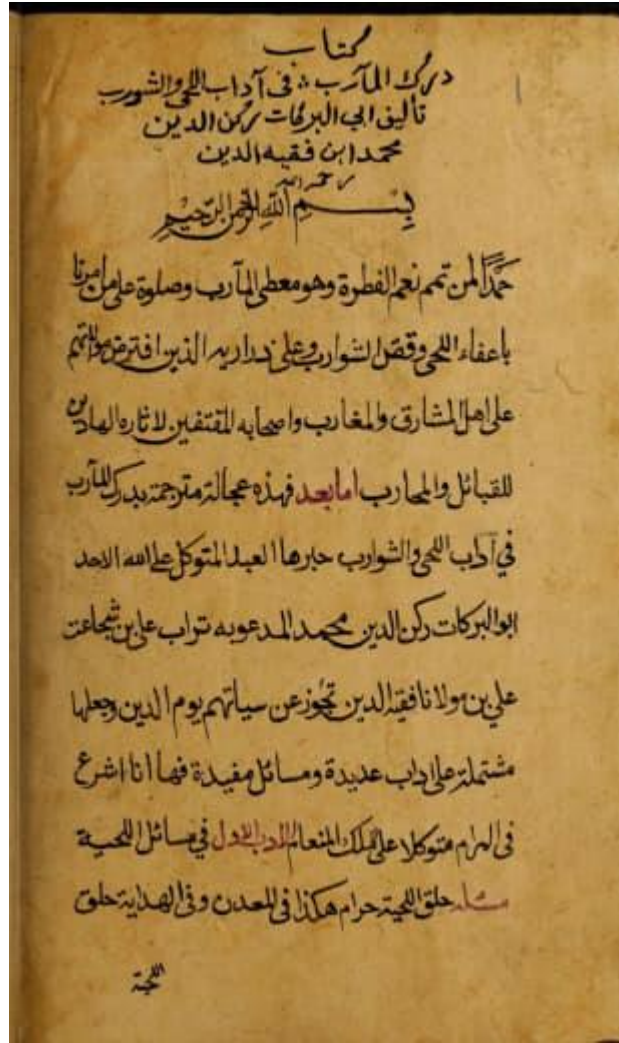 كتاب
درك المآرب في آداب اللحى والشورب
تأليف ابي البركات ركن الدين
محمد ابن فقيه الدين
رحمه الله
بِسْمِ اللَّهِ الرَّحمن الرَّحِيمِ
حمدًا لمن تمم نعم الفطرة وهو معطى المآرب وصلوة على من امرنا
باعفاء اللحى وقص الشوارب وعلى ذراريه الذين افترض موالاتهم
على اهل المشارق والمغارب واصحابه المقتفين لاثاره الهادين
للقبائل والمحارب اما بعد فهذه عجالة مترجمة بدرك المآرب
في آداب اللحى والشوارب حبرها العبد المتوكل على الله الاحد
ابو البركات ركن الدين محمد المدعو به تراب على بن شجاعت
علي بن مولانا فقيه الدين تجوز عن سياتهم يوم الدين وجعلها
مشتملة على اداب عديدة ومسائل مفيدة فها انا اشرع
في المرام متوكلا على الملك المنعام الادب الاول في مسائل اللحية
مسئلة حلق اللحية حرام هكذا في المعدن وفي الهداية حلق
اللحية